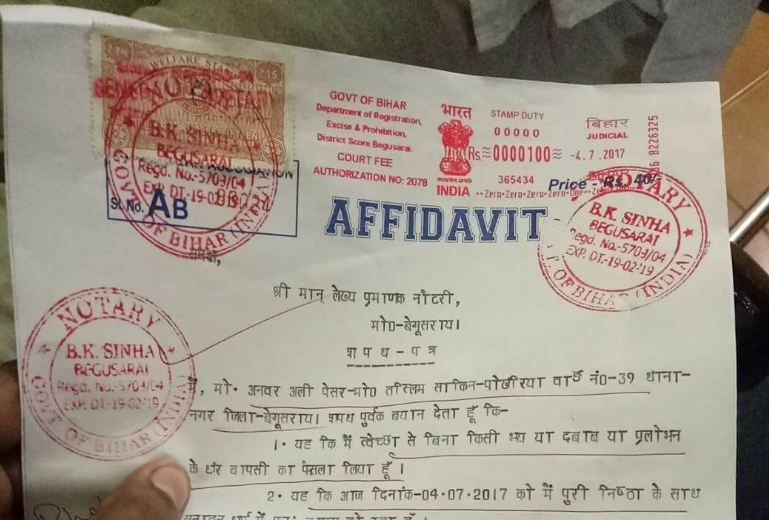 WELFARE STAMP
NOTARY
B.K. SINHA
BEGUSARAI
Regd. No.-5703/04
EXP. DT.-19-02-19
GOVT OF BIHAR (INDIA)
Sl. No. AB
GOVT OF BIHAR
Department of Registration,
Excise & Prohibition,
District Score Begusarai
COURT FEE
AUTHORIZATION NO: 2078
भारत
INDIA
STAMP DUTY
00000
Rs 0000100
365434
बिहार
JUDICIAL
-4.7.2017
8226325
Price - Rs. 40/-
AFFIDAVIT
NOTARY
B.K. SINHA
BEGUSARAI
Regd. No.-5703/04
EXP. DT.-19-02-19
GOVT OF BIHAR (INDIA)
समक्ष,
श्री मान लेख्य प्रमाणक नौटरी,
मो0-बेगूसराय।
शपथ-पत्र
NOTARY
B.K. SINHA
BEGUSARAI
Regd. No.-5703/04
EXP. DT.-19-02-19
GOVT OF BIHAR (INDIA)
मैं, मो. अनवर अली पेसर-मो0 तस्लिम साकिन-पोखरिया वार्ड नं0-39 थाना-
नगर जिला-बेगूसराय। शपथ पुर्वक बयान देता हूँ कि-
1. यह कि मैं स्वेच्छा से बिना किसी भय या दबाब या प्रलोभन
के घर वापसी का फैसला लिया हूँ।
2. यह कि आज दिनांक-04.07.2017 को मैं पुरी निष्ठा के साथ